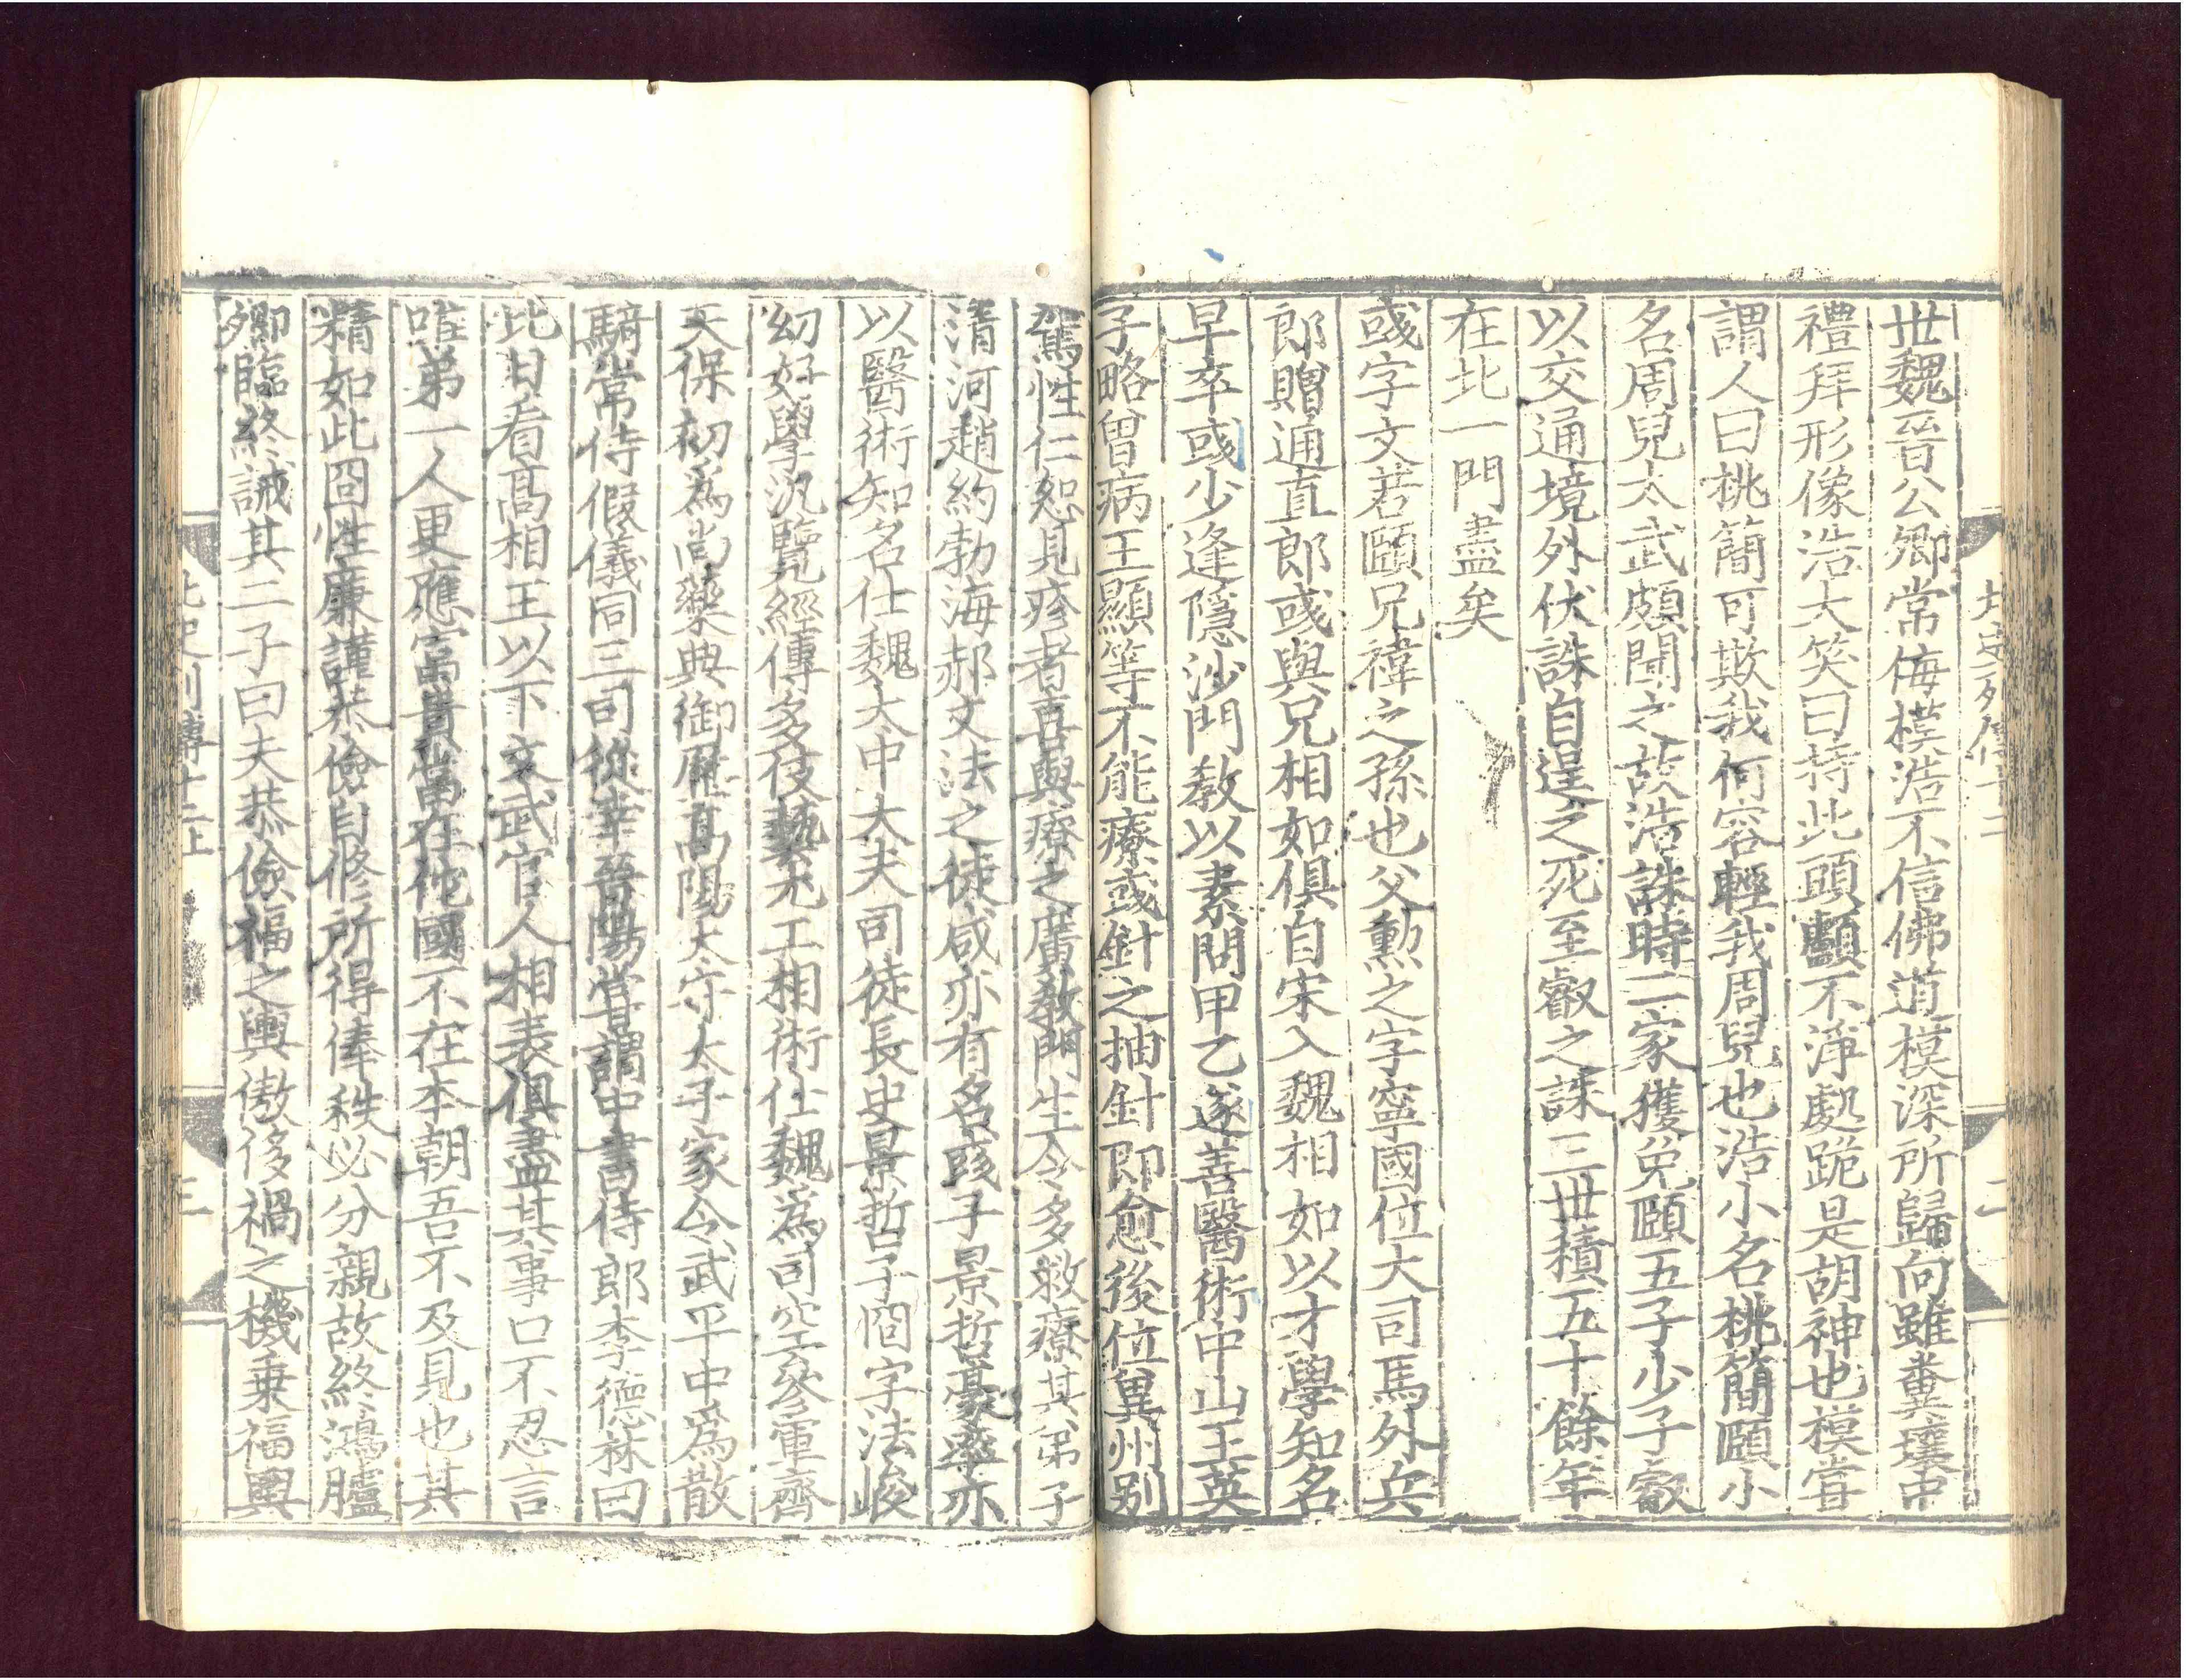 世魏晉公卿常侮模浩不信佛道模深所歸向雖糞壤中
禮拜形像浩大笑曰持此頭顱不淨處跪是胡神也模嘗
謂人曰桃簡可欺我何容輕我周兒也浩小名桃簡頤小
名周兒太武頗聞之故浩誅時二家獲免頤五子少子叡
以交通境外伏誅自逞之死至叡之誅三世積五十餘年
在北一門盡矣
彧字文若頤兄禕之孫也父勳之字寧國位大司馬外兵
郎贈通直郎彧與兄相如俱自宋入魏相如以才學知名
早卒彧少逢隱沙門教以素問甲乙遂善醫術中山王英
子略曾病王顯等不能療彧針之抽針即愈後位冀州別
駕性仁恕見疹者喜與療之廣教門生令多救療其弟子
清河趙約勃海郝文法之徒咸亦有名彧子景哲豪率亦
以醫術知名仕魏太中大夫司徒長史景哲子冏字法峻
幼好學汎覽經傳多伎藝尤工相術仕魏爲司空參軍齊
天保初爲尚藥典御歷高陽太守太子家令武平中爲散
騎常侍假儀同三司從幸晉陽嘗謂中書侍郎李德林曰
比日看高相王以下文武官人相表俱盡其事口不忍言
唯弟一人更應富貴當在他國不在本朝吾不及見也其
精如此冏性廉謹恭儉自修所得俸秩必分親故終鴻臚
卿臨終誡其二子曰夫恭儉福之輿傲侈禍之機乘福輿
北史列傳十二上
三